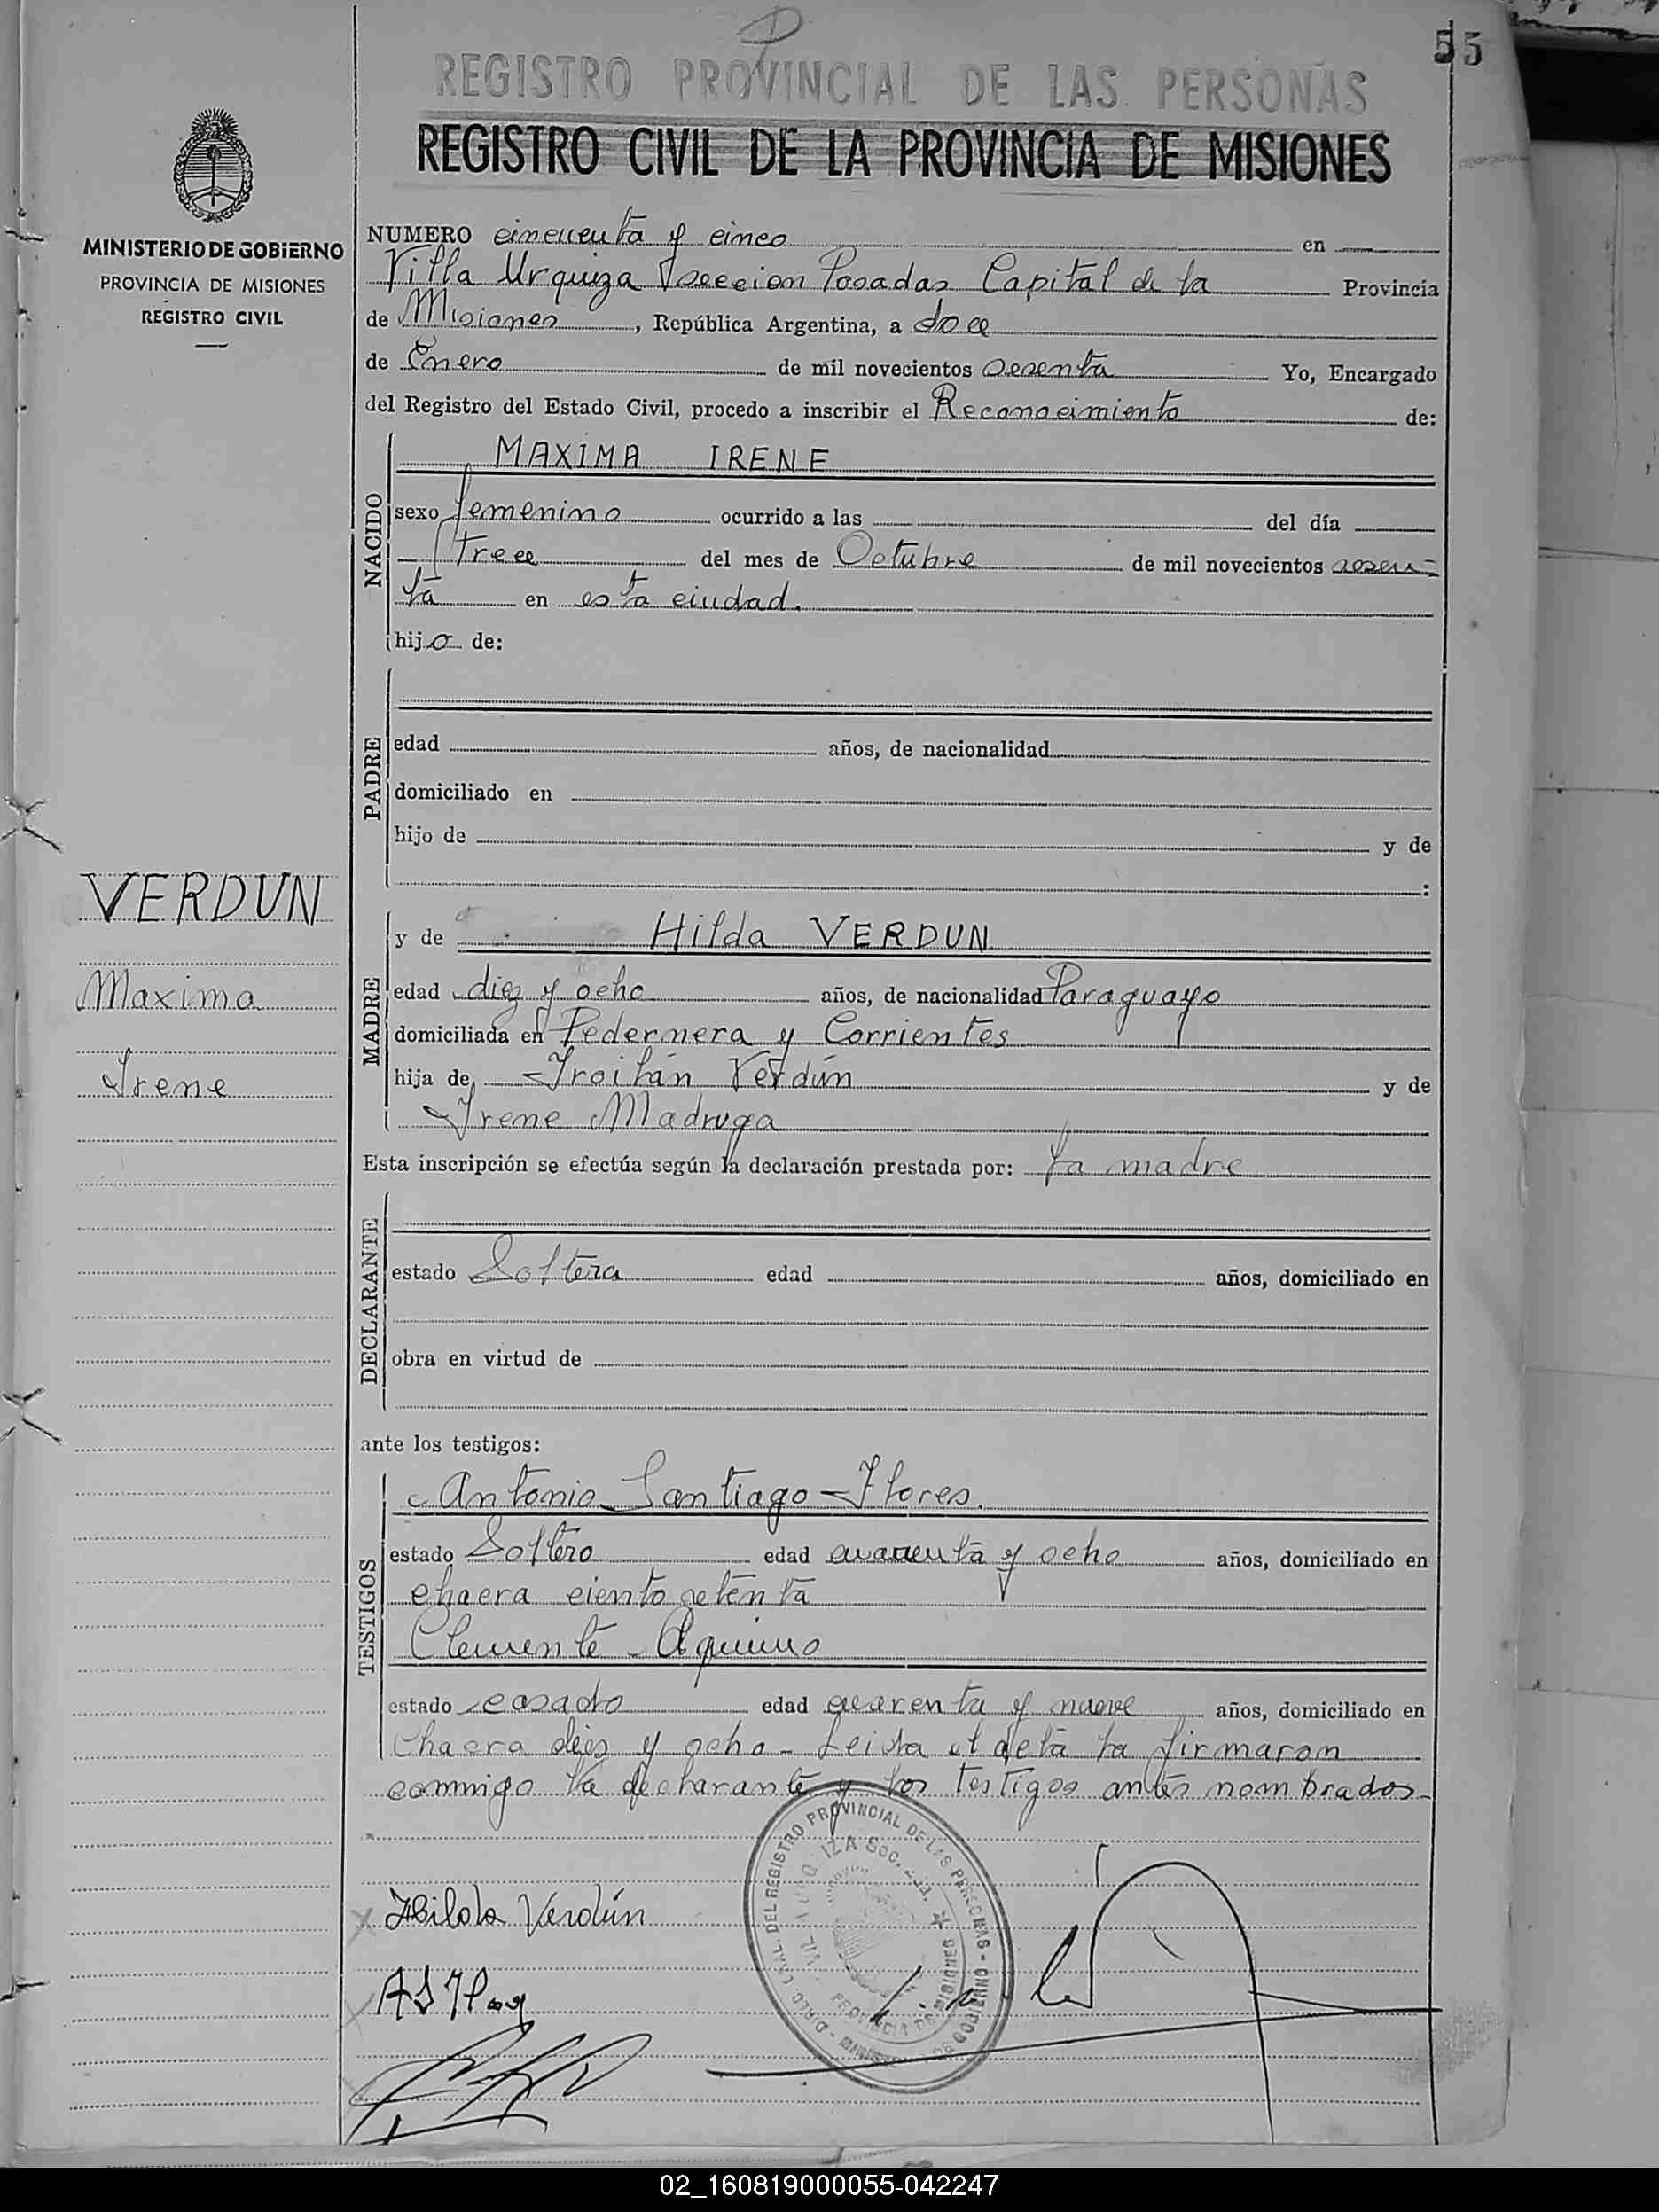 55
REGISTRO PROVINCIAL DE LAS PERSONAS
REGISTRO CIVIL DE LA PROVINCIA DE MISIONES
MINISTERIO DE GOBIERNO
PROVINCIA DE MISIONES
REGISTRO CIVIL
NUMERO cincuenta y cinco en
Villa Urquiza Seccion Posadas Capital de la Provincia
de Misiones, República Argentina, a doce
de Enero de mil novecientos sesenta Yo, Encargado
del Registro del Estado Civil, procedo a inscribir el Reconocimiento de:
NACIDO
MAXIMA IRENE
sexo femenino ocurrido a las del día
trece del mes de Octubre de mil novecientos sesen=
ta en esta ciudad.
hijo de:
PADRE
edad años, de nacionalidad
domiciliado en
hijo de y de
:
VERDUN
Maxima
Irene
MADRE
y de Hilda VERDUN
edad diez y ocho años, de nacionalidad Paraguayo
domiciliada en Pedernera y Corrientes
hija de Froilán Verdún y de
Irene Madruga
Esta inscripción se efectúa según la declaración prestada por: la madre
DECLARANTE
estado Soltera edad años, domiciliado en
obra en virtud de
ante los testigos:
TESTIGOS
Antonio Santiago Flores.
estado Soltero edad cuarenta y ocho años, domiciliado en
chacra ciento setenta
Clemente Aquino
estado casado edad cuarenta y nueve años, domiciliado en
Chacra diez y ocho - Leida el acta la firmaron
conmigo la declarante y los testigos antes nombrados
Hilda Verdún
DEL REGISTRO PROVINCIAL DE LAS PERSONAS
02_160819000055-042247